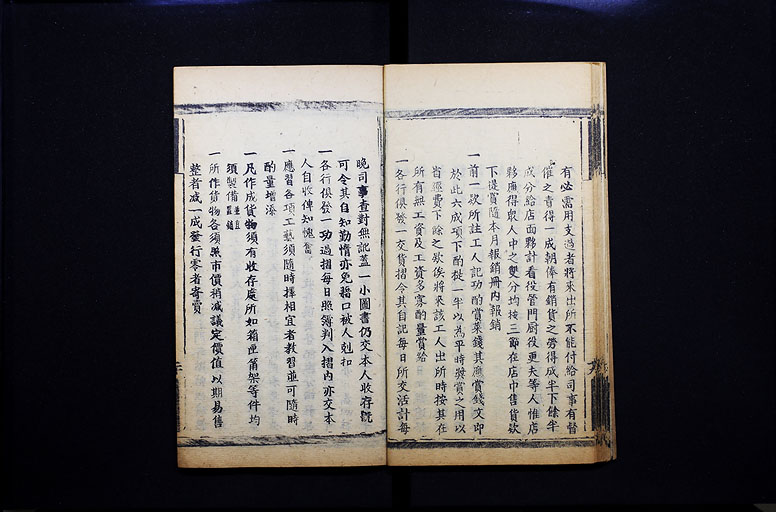 有必需用支過者將來出所不能付給司事有督
催之責得一成朝俸有銷貨之勞得成半下餘半
成分給店面夥計看役管門廚役更夫等人惟店
夥應得眾人中之雙分均按三節在店中售貨款
下提賞隨本月報銷冊內報銷
一前一款所註工人記功酌賞菜錢其應賞錢文即
於此六成項下酌提一半以為平時獎賞之用以
省經費下餘之款俟將來該工人出所時按其在
所有無工資及工資多寡酌量賞給
一各行俱發一交貨摺令其自記每日所交活計每
晚司事查對無訛蓋一小圖書仍交本人收存既
可令其自知勤惰亦免藉口被人剋扣
一各行俱發一功過摺每日照簿判入摺內亦交本
人自收俾知愧奮
一應習各項工藝須隨時擇相宜者教習並可隨時
酌量增添
一凡作成貨物須有收存處所如箱匣筩架等件均
須製備
一所作貨物各須照市價稍減議定價值以期易售
整者減一成發行零者寄賣